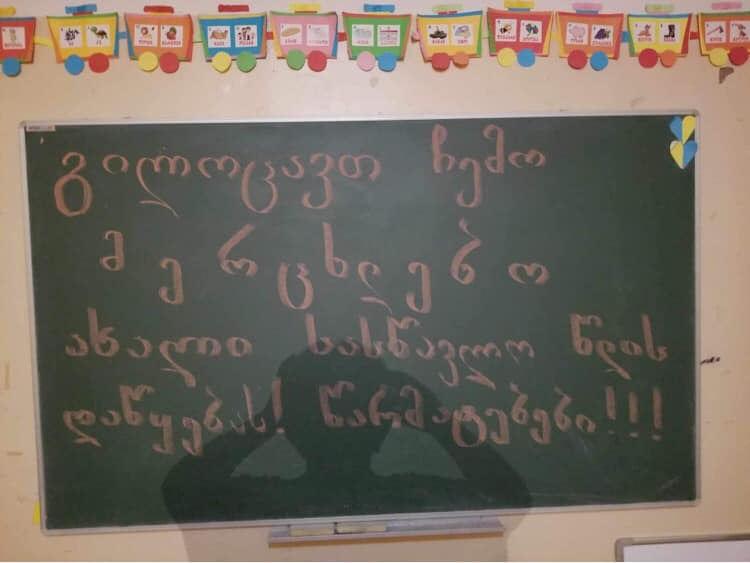 გილოცავთ ჩემო
მერცხლებო
ახალი სასწავლო წლის
დაწყებას! წარმატებები!!!